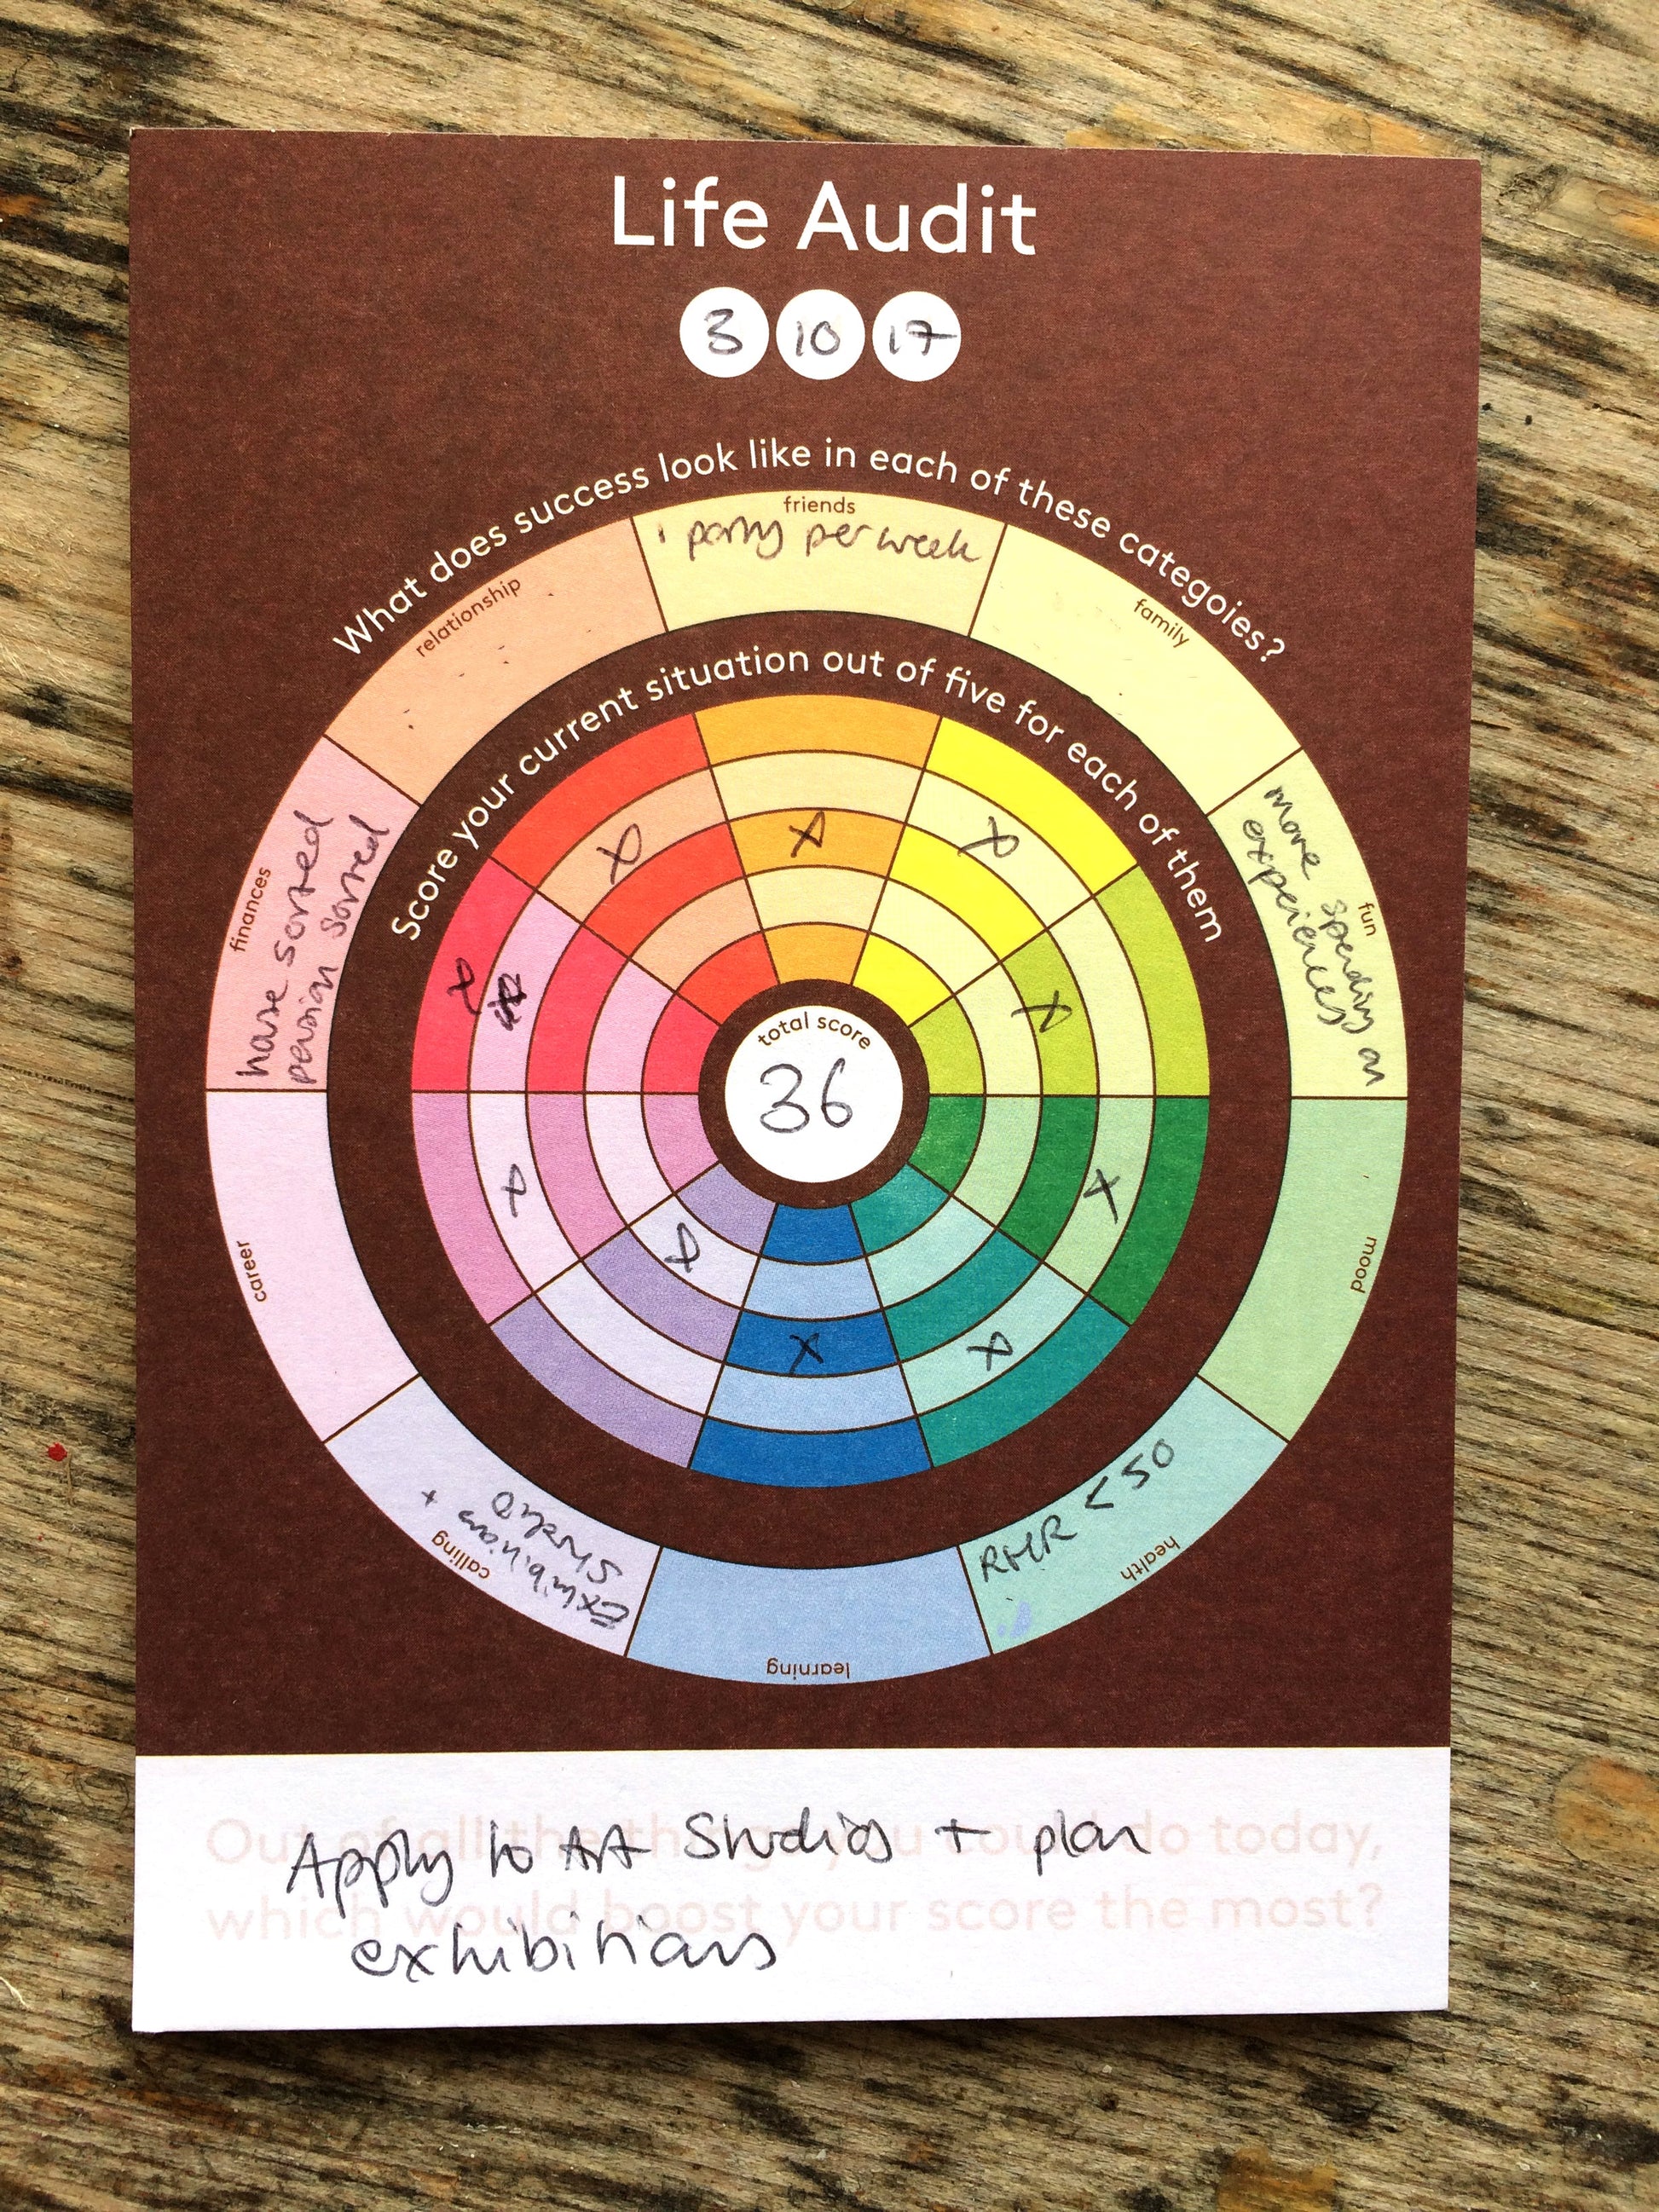 Life Audit
3 10 17
What does success look like in each of these categoies?
friends
1 party per week
family
fun
more spending on
experiences
mood
health
RHR < 50
learning
calling
Exhibitions +
Studio
career
finances
house sorted
pension sorted
relationship
Score your current situation out of five for each of them
total score
36
Out of all the things you could do today,
which would boost your score the most?
Apply to Art Studios + plan
exhibitions